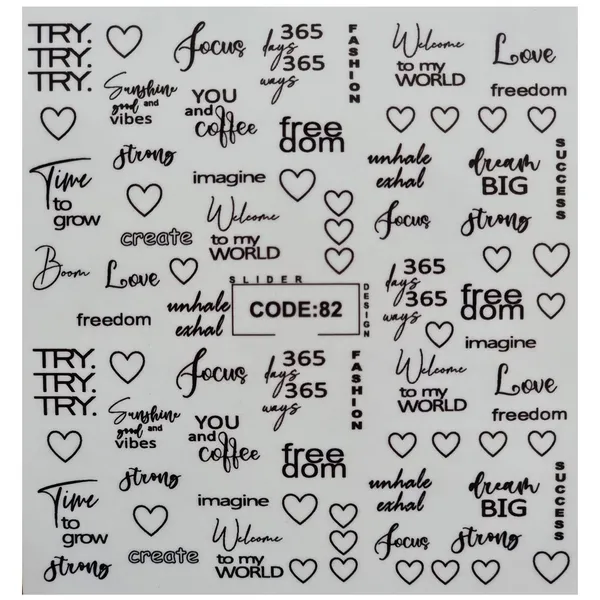 TRY.
TRY.
TRY.
Focus
365
days
365
ways
FASHION
Welcome
to my
WORLD
Love
freedom
Sunshine
good and
vibes
YOU
and
coffee
free
dom
strong
unhale
exhal
dream
BIG
SUCCESS
Time
to
grow
imagine
Welcome
to my
WORLD
focus
strong
create
Boom
Love
freedom
unhale
exhal
SLIDER
CODE:82
DESIGN
365
days
365
ways
free
dom
imagine
TRY.
TRY.
TRY.
Focus
365
days
365
ways
FASHION
Welcome
to my
WORLD
Love
freedom
Sunshine
good and
vibes
YOU
and
coffee
free
dom
strong
unhale
exhal
dream
BIG
SUCCESS
Time
to
grow
imagine
Welcome
to my
WORLD
focus
strong
create
strong